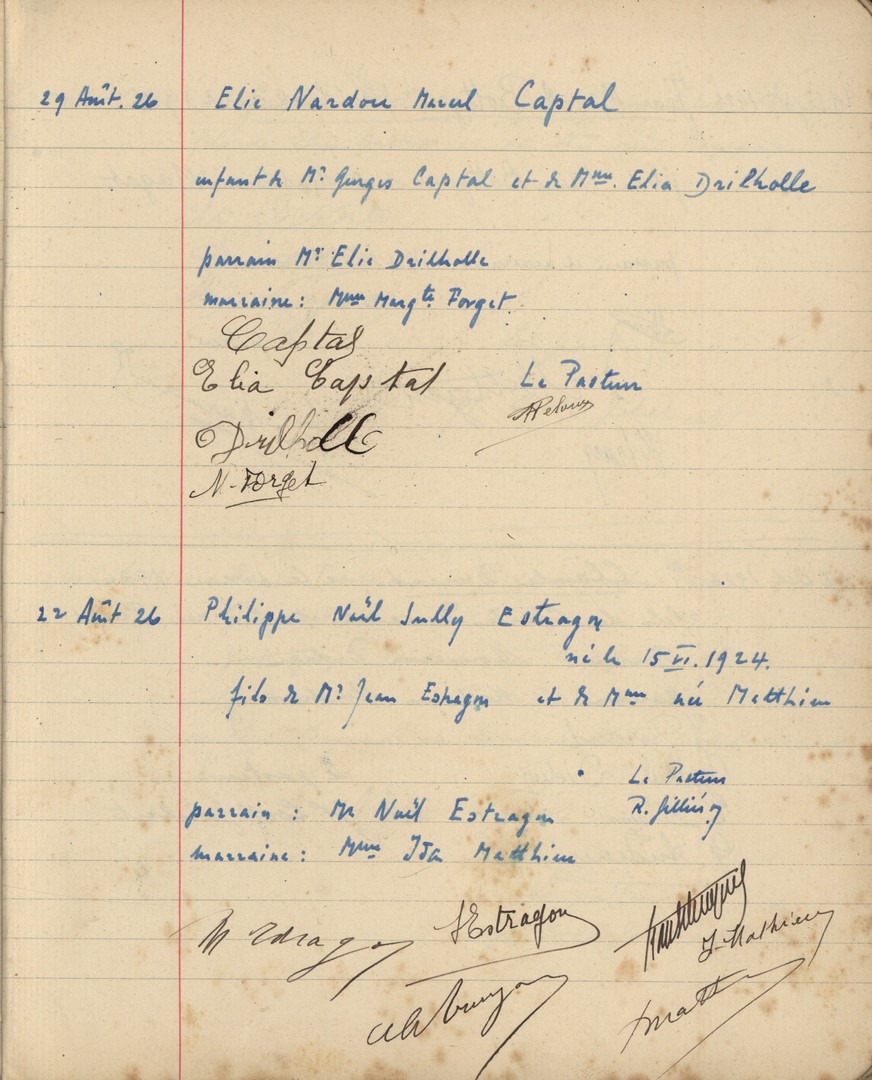 29 Août. 26 Elie Nardou Marcel Captal
enfant de Mr Georges Captal et de Mme. Elia Drilholle
parrain Mr Elie Drilholle
marraine: Mme Margte Forget.
Captal
Elia Captal Le Pasteur
Drilholle
N. Forget
22 Août 26 Philippe Noël Sully Estragon
né le 15 VI. 1924.
fils de Mr Jean Estragon et de Mme née Matthieu
Le Pasteur
parrain : Mr Noël Estragon R. Gilliéron
marraine : Mme Ida Matthieu
Estragon
J. Mathieu